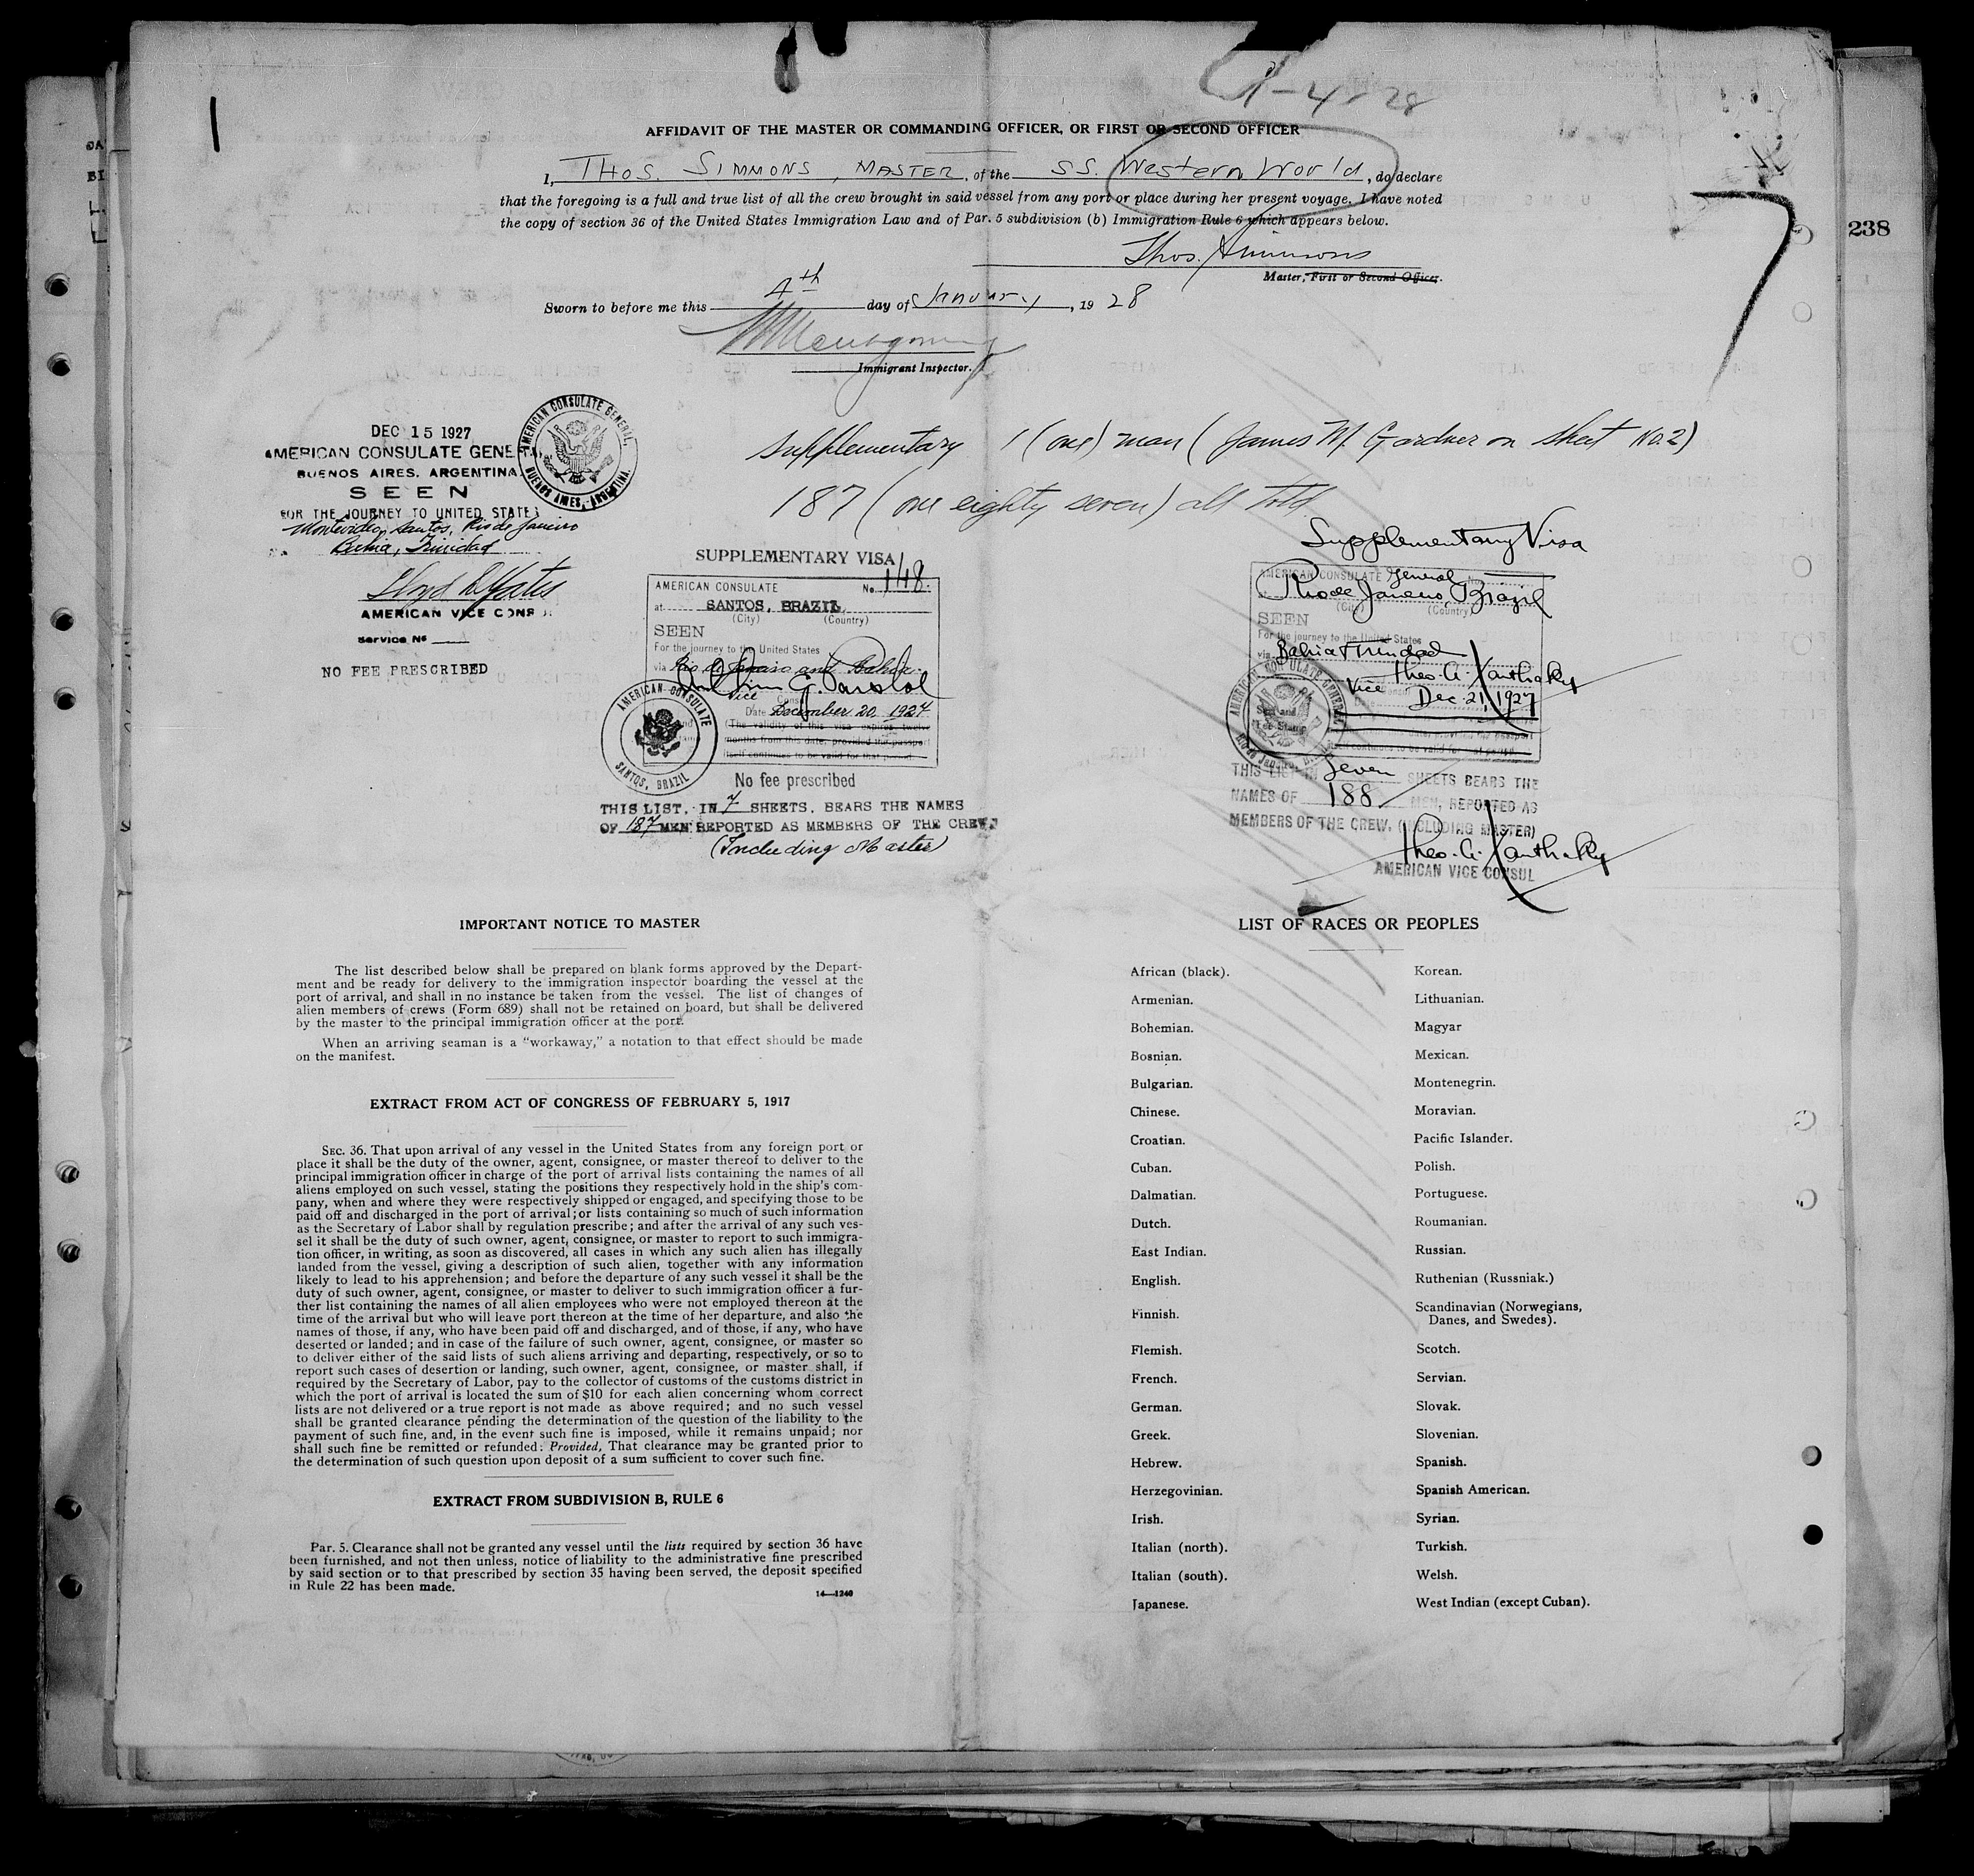 1-4-28
AFFIDAVIT OF THE MASTER OR COMMANDING OFFICER, OR FIRST OR SECOND OFFICER
I, THOS. SIMMONS, MASTER, of the SS. Western World, do declare
that the foregoing is a full and true list of all the crew brought in said vessel from any port or place during her present voyage. I have noted
the copy of section 36 of the United States Immigration Law and of Par. 5 subdivision (b) Immigration Rule 6 which appears below.
Thos. Simmons
Master, First or Second Officer.
238
7
Sworn to before me this 4th day of January, 19 28
Immigrant Inspector.
DEC 15 1927
AMERICAN CONSULATE GENERAL
BUENOS AIRES. ARGENTINA
SEEN
FOR THE JOURNEY TO UNITED STATES
Montevideo, Santos, Rio de Janeiro
Bahia, Trinidad
AMERICAN VICE CONS
Service No
NO FEE PRESCRIBED
AMERICAN CONSULATE GENERAL,
BUENOS AIRES, ARGENTINA.
Supplementary 1 (one) man (James M. Gardner on sheet No. 2)
187 (one eighty seven) all told
SUPPLEMENTARY VISA
AMERICAN CONSULATE No. 148.
at SANTOS, BRAZIL
(City) (Country)
SEEN
For the journey to the United States
via Rio de Janeiro and Bahia.
Vice
Date December 20, 1927
(The validity of this visa expires twelve
months from this date, provided the passport
itself continues to be valid for that period.
AMERICAN CONSULATE
SANTOS, BRAZIL
No fee prescribed
THIS LIST, IN 7 SHEETS, BEARS THE NAMES
OF 187 MEN REPORTED AS MEMBERS OF THE CREW.
(Including Master)
Supplementary Visa
AMERICAN CONSULATE General No.
at Rio de Janeiro, Brazil
(City) (Country)
SEEN
For the journey to the United States
via Bahia Trinidad
Theo. A. Xanthaky
Vice
Dec. 21, 1927
AMERICAN CONSULATE GENERAL
Rio de Janeiro
Seal and
Fee Stamp
THIS LIST IN Seven SHEETS BEARS THE
NAMES OF 188 MEN, REPORTED AS
MEMBERS OF THE CREW. (INCLUDING MASTER)
Theo. A. Xanthaky
AMERICAN VICE CONSUL
IMPORTANT NOTICE TO MASTER
The list described below shall be prepared on blank forms approved by the Depart-
ment and be ready for delivery to the immigration inspector boarding the vessel at the
port of arrival, and shall in no instance be taken from the vessel. The list of changes of
alien members of crews (Form 689) shall not be retained on board, but shall be delivered
by the master to the principal immigration officer at the port.
When an arriving seaman is a "workaway," a notation to that effect should be made
on the manifest.
EXTRACT FROM ACT OF CONGRESS OF FEBRUARY 5, 1917
SEC. 36. That upon arrival of any vessel in the United States from any foreign port or
place it shall be the duty of the owner, agent, consignee, or master thereof to deliver to the
principal immigration officer in charge of the port of arrival lists containing the names of all
aliens employed on such vessel, stating the positions they respectively hold in the ship's com-
pany, when and where they were respectively shipped or engaged, and specifying those to be
paid off and discharged in the port of arrival; or lists containing so much of such information
as the Secretary of Labor shall by regulation prescribe; and after the arrival of any such ves-
sel it shall be the duty of such owner, agent, consignee, or master to report to such immigra-
tion officer, in writing, as soon as discovered, all cases in which any such alien has illegally
landed from the vessel, giving a description of such alien, together with any information
likely to lead to his apprehension; and before the departure of any such vessel it shall be the
duty of such owner, agent, consignee, or master to deliver to such immigration officer a fur-
ther list containing the names of all alien employees who were not employed thereon at the
time of the arrival but who will leave port thereon at the time of her departure, and also the
names of those, if any, who have been paid off and discharged, and of those, if any, who have
deserted or landed; and in case of the failure of such owner, agent, consignee, or master so
to deliver either of the said lists of such aliens arriving and departing, respectively, or so to
report such cases of desertion or landing, such owner, agent, consignee, or master shall, if
required by the Secretary of Labor, pay to the collector of customs of the customs district in
which the port of arrival is located the sum of $10 for each alien concerning whom correct
lists are not delivered or a true report is not made as above required; and no such vessel
shall be granted clearance pending the determination of the question of the liability to the
payment of such fine, and, in the event such fine is imposed, while it remains unpaid; nor
shall such fine be remitted or refunded: Provided, That clearance may be granted prior to
the determination of such question upon deposit of a sum sufficient to cover such fine.
EXTRACT FROM SUBDIVISION B, RULE 6
Par. 5. Clearance shall not be granted any vessel until the lists required by section 36 have
been furnished, and not then unless, notice of liability to the administrative fine prescribed
by said section or to that prescribed by section 35 having been served, the deposit specified
in Rule 22 has been made.
14—1240
LIST OF RACES OR PEOPLES
African (black).
Armenian.
Bohemian.
Bosnian.
Bulgarian.
Chinese.
Croatian.
Cuban.
Dalmatian.
Dutch.
East Indian.
English.
Finnish.
Flemish.
French.
German.
Greek.
Hebrew.
Herzegovinian.
Irish.
Italian (north).
Italian (south).
Japanese.
Korean.
Lithuanian.
Magyar
Mexican.
Montenegrin.
Moravian.
Pacific Islander.
Polish.
Portuguese.
Roumanian.
Russian.
Ruthenian (Russniak.)
Scandinavian (Norwegians,
Danes, and Swedes).
Scotch.
Servian.
Slovak.
Slovenian.
Spanish.
Spanish American.
Syrian.
Turkish.
Welsh.
West Indian (except Cuban).